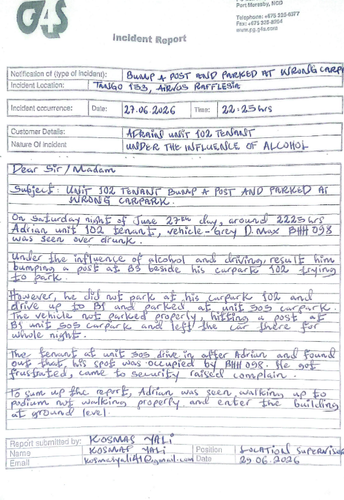 G4S
Port Moresby, NCD
Telephone: +675 325-6377
Fax: +675 325-8764
www.pg.g4s.com
Incident Report
Notification of (type of Incident): BUMP A POST AND PARKED AT WRONG CARP
Incident Location: TANGO 133, AIRVOS RAFFLESIA
Incident occurrence: Date: 27.06 2026 Time: 22:25hrs
Customer Details: ADRAIN UNIT 102 TENANT
Nature Of Incident UNDER THE INFLUENCE OF ALCOHOL
Dear Sir / Madam
Subject: UNIT 102 TENANT BUMP A POST AND PARKED AT
WRONG CARPARK.
On Saturday night of June 27th day, around 2225hrs
Adrian unit 102 tenant, vehicle - Grey D.Max BHH 098
was seen over drunk.
Under the influence of alcohol and driving, result him
bumping a post at B5 beside his carpark 102 trying
to park.
However, he did not park at his carpark 102 and
drive up to B1 and parked at unit 505 carpark
The vehicle not parked properly, hitting a post at
B1 unit 505 carpark and left the car there for
whole night.
The tenant at unit 505 drive in after Adrian and found
out that, his spot was occupied by BHH 098. He got
frustrated, came to security raised complain.
To sum up the report, Adrian was seen walking up to
podium not walking properly and enter the building
at ground level.
Report submitted by: KOSMAS YALI
Name KOSMAS YALI Position LOCATION SUPERVISOR
Email kosmasyali41@gmail.com Date 29 06 2026